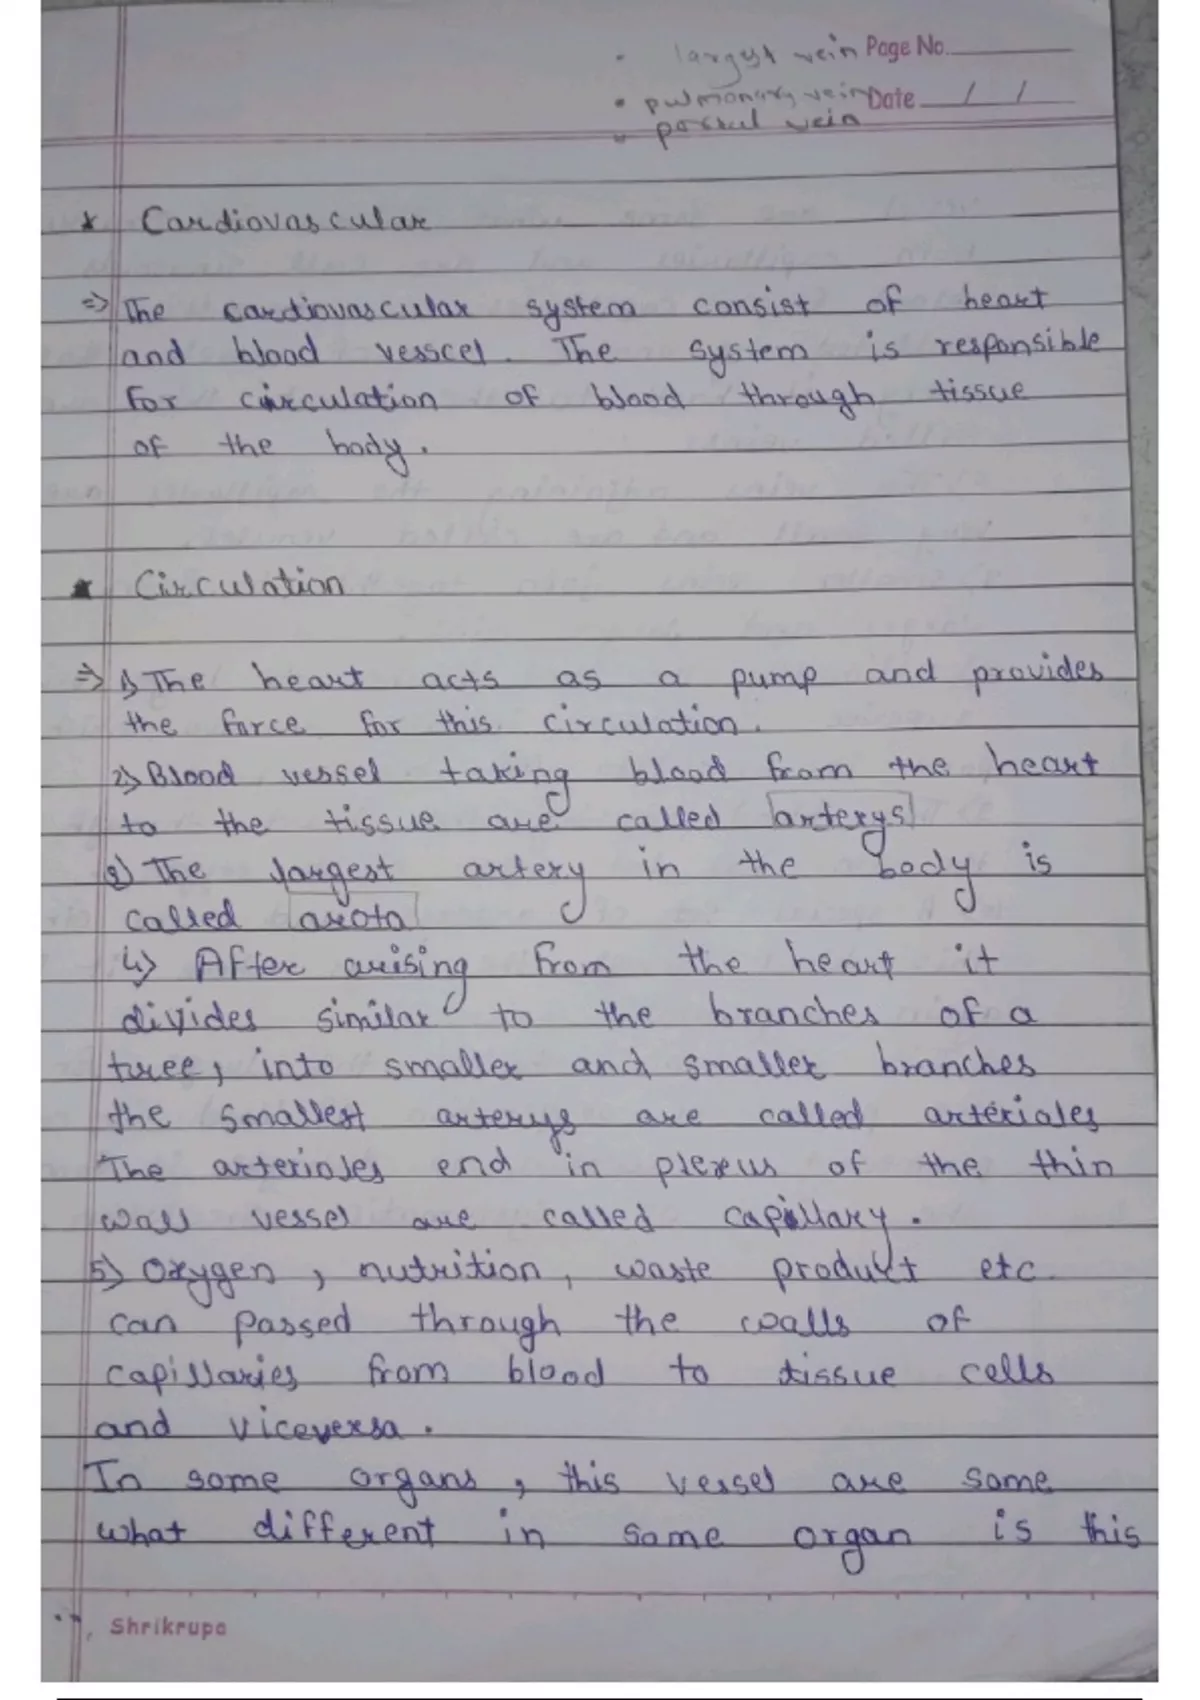 • largest vein Page No.
• pulmonary vein Date / /
• portal vein
* Cardiovascular
=> The cardiovascular system consist of heart
and blood vesscel. The system is responsible
for circulation of blood through tissue
of the body.
* Circulation
=> 1) The heart acts as a pump and provides
the force for this circulation.
2) Blood vessel taking blood from the heart
to the tissue are called arterys
3) The largest artery in the body is
called arota
4) After arising from the heart it
divides similar to the branches of a
tree, into smaller and smaller branches
the smallest arterys are called arterioles
The arterioles end in plexus of the thin
wall vessel are called capillary.
5) Oxygen, nutrition, waste product etc.
can passed through the walls of
capillaries from blood to tissue cells
and viceversa.
In some organs, this vessel are some
what different in some organ is this
Shrikrupa